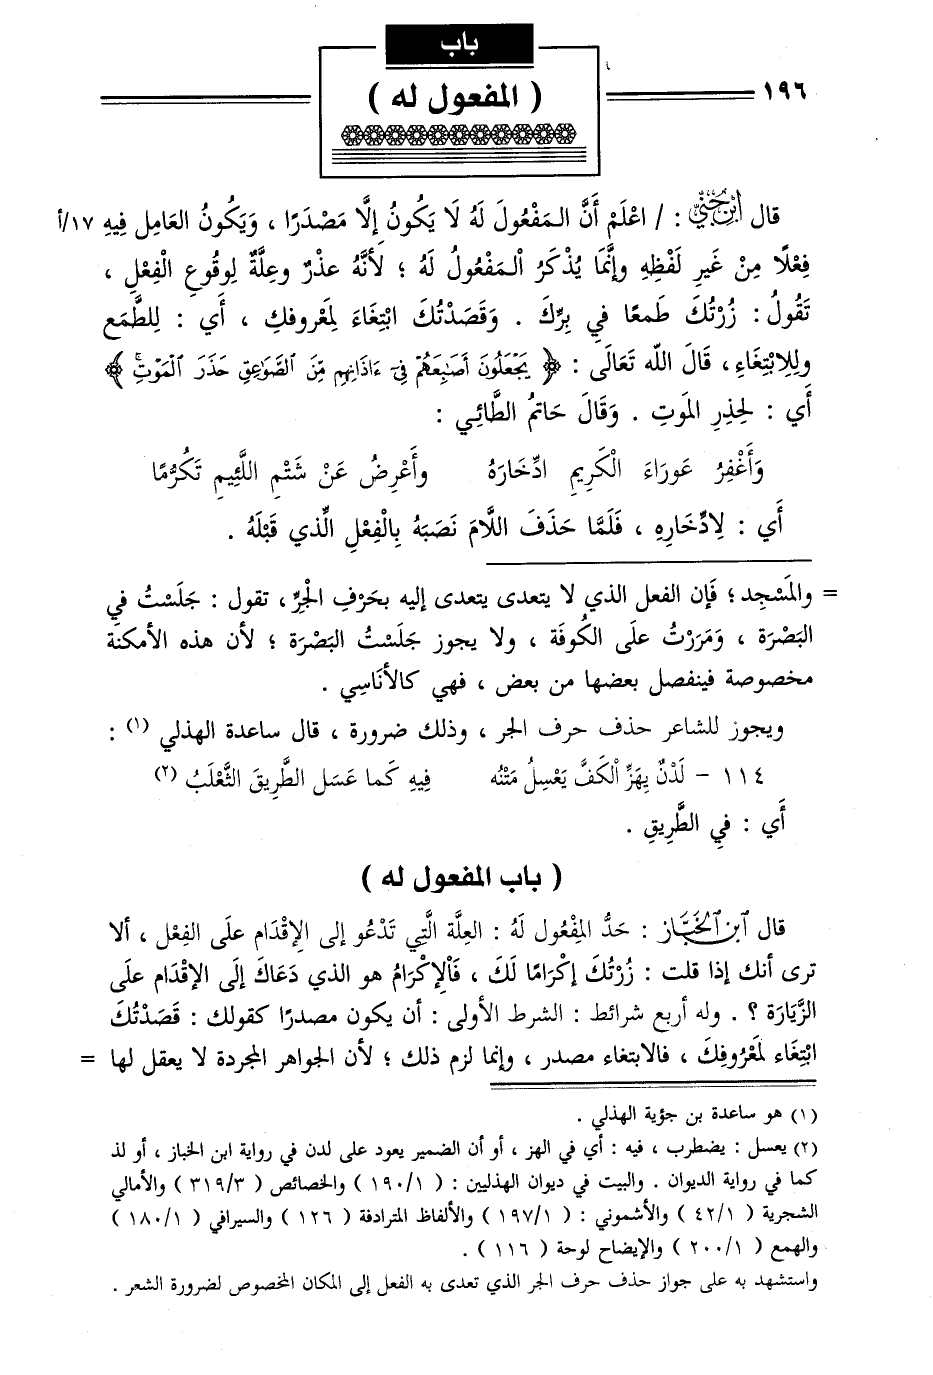 باب
١٩٦
( المفعول له )
قال ابن جني : / اعْلَمْ أَنَّ المَفْعُولَ لَهُ لَا يَكُونُ إِلَّا مَصْدَرًا ، وَيَكُونُ العَامِل فِيهِ ١٧/أ
فِعْلًا مِنْ غَيرِ لَفْظِهِ وإِنَّمَا يُذْكَرُ الْمَفْعُولُ لَهُ ؛ لأنَّهُ عذْرٌ وعِلَّةٌ لِوقُوعِ الْفِعْلِ ،
تَقُولُ : زُرْتُكَ طَمعًا في بِرِّكَ . وَقَصَدْتُكَ ابْتِغَاءَ لِمَعْروفكِ ، أَي : لِلطَّمَعِ
وللِابْتِغَاءِ ، قَالَ الله تَعَالَى : ﴿ يَجْعَلُونَ أَصَٰبِعَهُمْ فِىٓ ءَاذَانِهِم مِّنَ ٱلصَّوَٰعِقِ حَذَرَ ٱلْمَوْتِۚ ﴾
أَي : لِحِذرِ المَوتِ . وَقَالَ حَاتمُ الطَّائِي :
وَأَغْفِرُ عَورَاءَ الْكَرِيمِ ادِّخَارَهُ وأَعْرِضُ عَنْ شَتْمِ اللَّئِيمِ تَكَرُّمًا
أَي : لِادِّخَارِهِ ، فَلَمَّا حَذَفَ اللَّامَ نَصَبَهُ بِالْفِعْلِ الِّذي قَبْلَهُ .
= والمَسْجِد ؛ فَإن الفعل الذي لا يتعدى يتعدى إليه بحَرْفِ الْجِرِّ ، تقول : جَلَسْتُ في
البَصْرَة ، وَمَرَرْتُ علَى الكُوفَة ، ولا يجوز جَلَسْتُ البَصْرَة ؛ لأن هذه الأمكنة
مخصوصة فينفصل بعضها من بعض ، فهي كالأنَاسِي .
ويجوز للشاعر حذف حرف الجر ، وذلك ضرورة ، قال ساعدة الهذلي (١) :
١١٤ - لَدْنٌ يِهَزِّ الْكَفَّ يَعْسِلُ مَتْنُه فِيهِ كَما عَسَل الطَّرِيقَ الثَّعْلَبُ (٢)
أَي : في الطَّرِيقِ .
( باب المفعول له )
قال ابن الخباز : حَدُّ المِفْعُول لَهُ : العِلَّة الَّتِي تَدْعُو إلى الإقْدَام علَى الفِعْل ، ألا
ترى أنك إذا قلت : زُرْتُكَ إكْرَامًا لَكَ ، فَاْلإكْرَامُ هو الذي دَعَاكَ إلَى الإقْدَام علَى
الزِّيَارَة ؟ . وله أربع شرائط : الشرط الأولى : أن يكون مصدرًا كقولك : قَصَدْتُكَ
ابْتِغَاء لمَعْرُوفِكَ ، فالابتغاء مصدر ، وإنما لزم ذلك ؛ لأن الجواهر المجردة لا يعقل لها =
(١) هو ساعدة بن جؤية الهذلي .
(٢) يعسل : يضطرب ، فيه : أي في الهز ، أو أن الضمير يعود على لدن في رواية ابن الخباز ، أو لذ
كما في رواية الديوان . والبيت في ديوان الهذليين : ( ١٩٠/١ ) والخصائص ( ٣١٩/٣ ) والأمالي
الشجرية ( ٤٢/١ ) والأشموني : ( ١٩٧/١ ) والألفاظ المترادفة ( ١٢٦ ) والسيرافي ( ١٨٠/١ )
والهمع ( ٢٠٠/١ ) والإيضاح لوحة ( ١١٦ ) .
واستشهد به على جواز حذف حرف الجر الذي تعدى به الفعل إلى المكان المخصوص لضرورة الشعر .